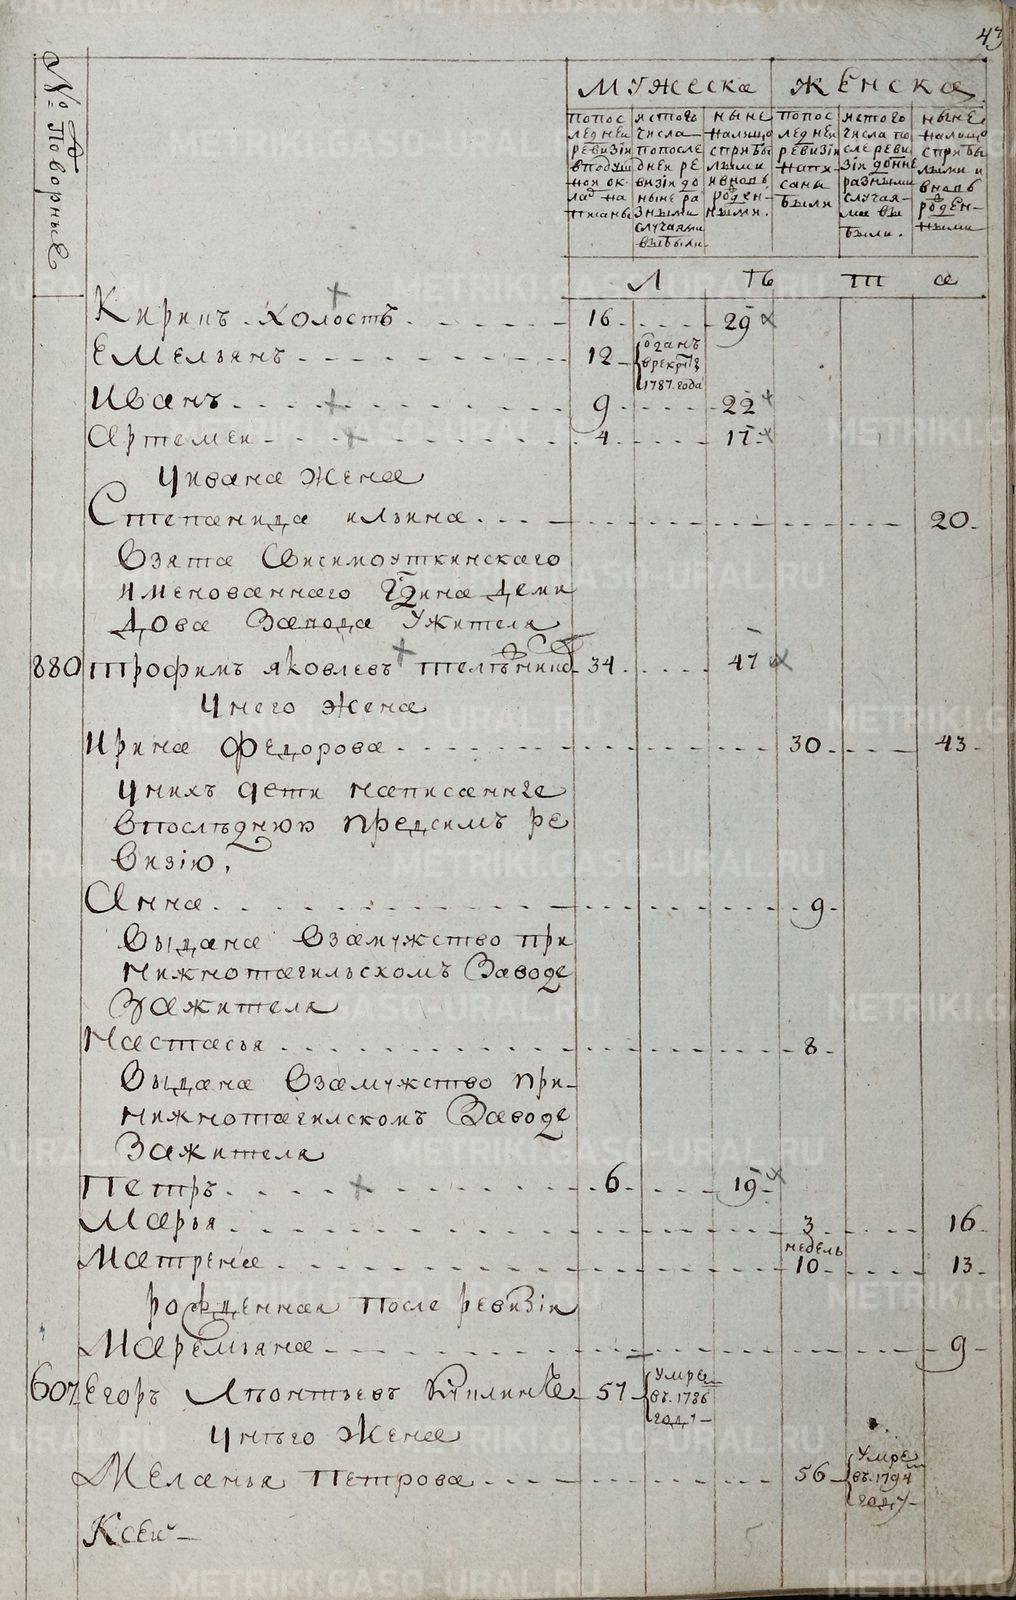 43
№ Дворные
МУЖЕСКА
ЖЕНСКА
попос леднеи ревизіи в подушнои оклад написаны
ис того числа попоследнеи ревизіи до ныне разными случаями выбыли
ныне налицо с прибылыми и вновь рожденными.
попос леднеи ревизіи написаны были
ис того числа после ревизіи до ныне разными случаями выбыли.
ныне налицо с прибылыми и вновь рожденными
Л ТЬ Т а
Кирилъ холостъ 16 29
Емельянъ 12 отданъ в рекруты 1787. года
Иванъ 9 22
Артемеи 4 17
У ивана жена
Степанида ильина 20
взята Висимоуткинскаго
именованнаго гдина Деми
Дова Завода Ужителя
880 трофимъ яковлевъ 34 47
У него жена
Ирина Федорова 30 43
У нихъ дети написанные
в последнюю пред симъ ре
визію.
Анна 9
Выдана Взамужство при
нижнотагильскомъ Заводе
Зажителя
Настасья 8
Выдана Взамужство при
нижнотагилскомъ Заводе
Зажителя
Петръ 6 19
Марья 3 16
Матрена недель 10 13
рожденная после ревизіи
Маремьяна 9
607 Егоръ Леонтьевъ 57 Умре въ. 1786 году
У него Жена
Меланья Петрова 56 Умре въ. 1794 году
Ксеи
METRIKI.GASO-URAL.RU